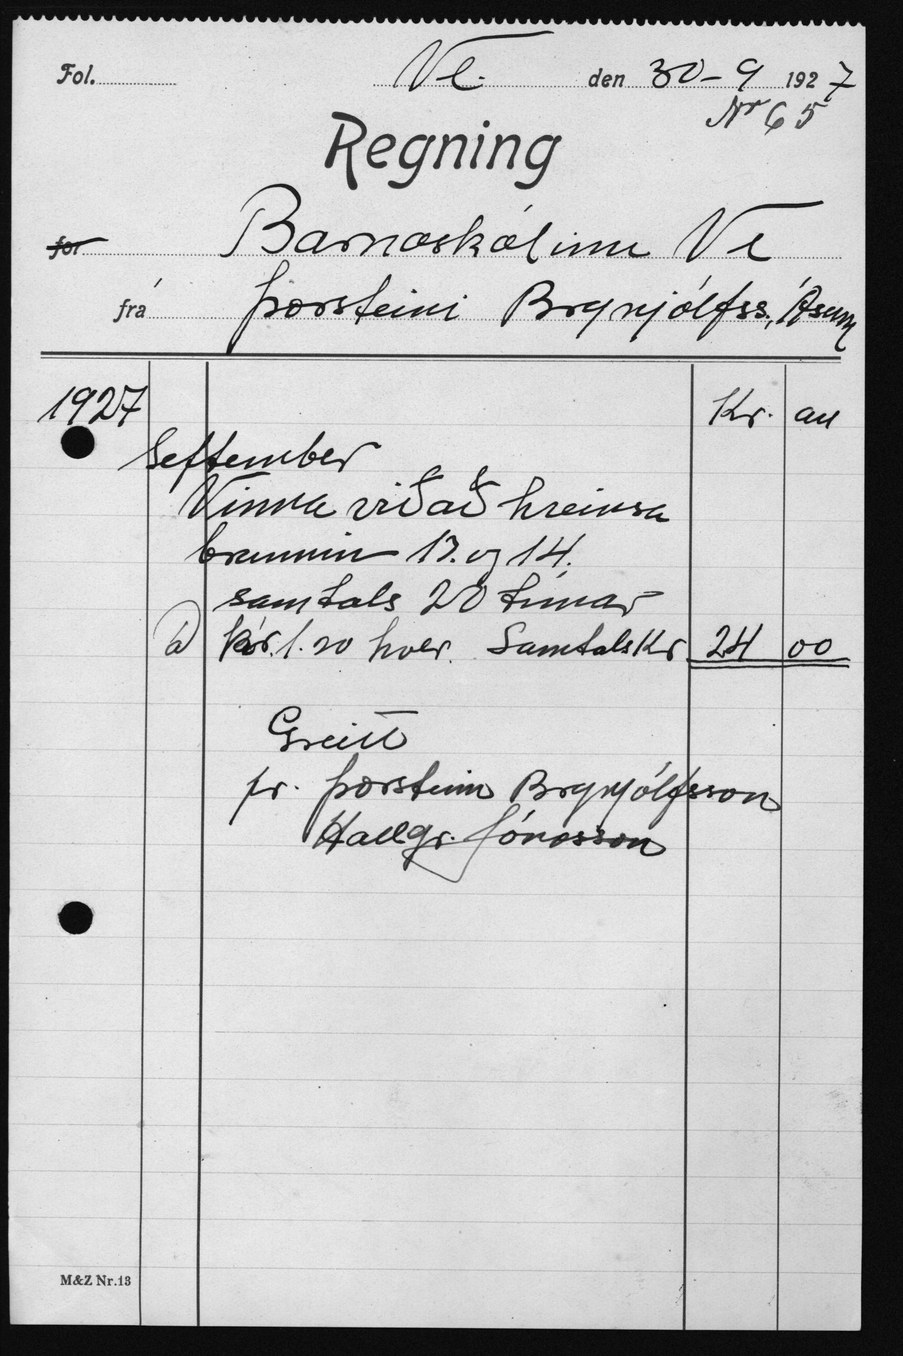 Fol. Ve. den 30-9 1927
Nr 65
Regning
for Barnaskólinn Ve
frá Þorsteini Brynjólfss, Ásum
1927 Kr. au
September
Vinna við að hreinsa
brunninn 13. og 14.
samtals 20 tímar
á kr. 1.20 hver. Samtals Kr 24 00
Greitt
pr. Þorsteinn Brynjólfsson
Hallgr. Jónasson
M&Z Nr.13